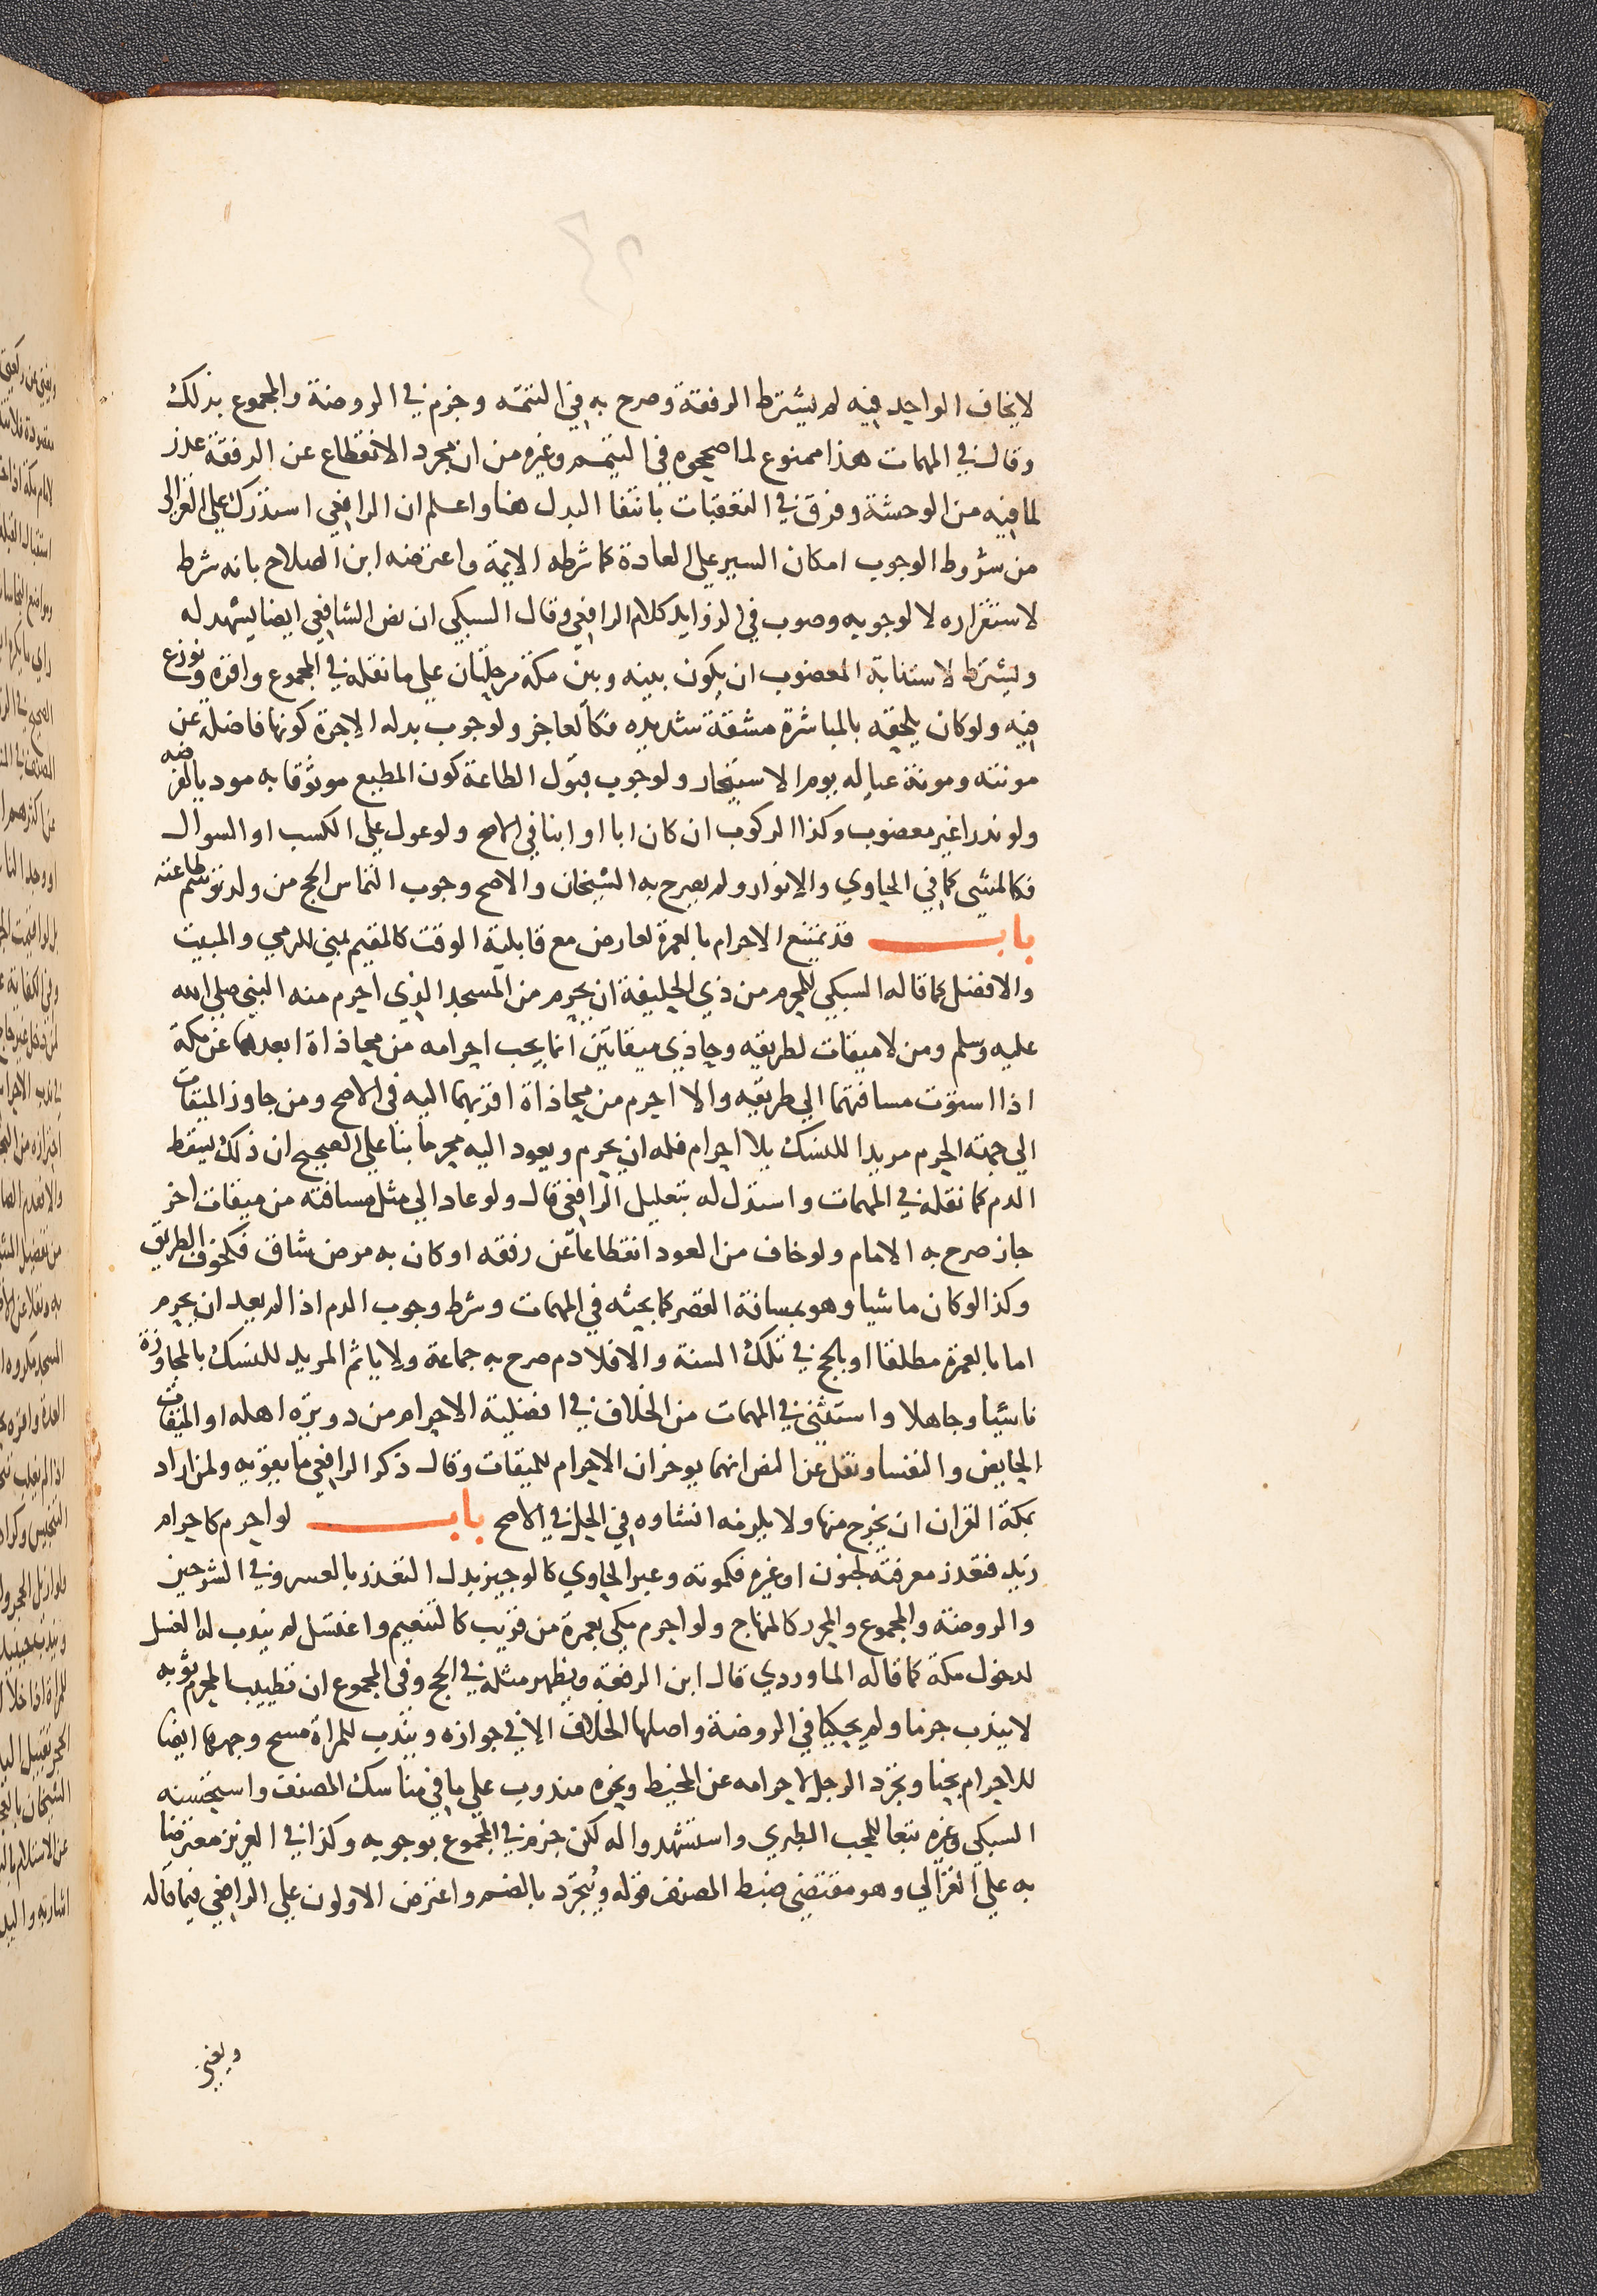 لايخاف الواحد فيه لم يشترط الرفقة وصرح به في التتمه وجزم في الروضة والمجموع بذلك
وقال في المهمات هذا ممنوع لما صححوه في التيمم وغيره من ان مجرد الانقطاع عن الرفقة عذر
لما فيه من الوحشة وفرق في التعقبات بانتفا البدل هنا واعلم ان الرافعي استدرك علي الغزالي
من شروط الوجوب امكان السير علي العادة كما شرطه الايمة واعترضه ابن الصلاح بانه شرط
لاستقراره لا لوجوبه وصوب في الزوايد كلام الرافعي وقال السبكي ان نص الشافعي ايضا يشهد له
ويشترط لاستنابة المعضوب ان يكون بينه وبين مكة مرحلتان علي ما نقله في المجموع واقره ونوزع
فيه ولو كان يلحقه بالمباشرة مشقة شديده فكالعاجز ولوجوب بدله الاجرة كونها فاضلة عن
مونته ومونة عياله يوم الاستيجار ولوجوب قبول الطاعة كون المطيع موثوقا به موديا لفرضه
ولو نذرا غير معضوب وكذا الركوب ان كان ابا او ابنا في الاصح ولو عول علي الكسب او السوال
فكالمشي كما في الحاوي والانوار ولم يصرح به الشيخان والاصح وجوب التماس الحج من ولد توسم طاعته
باب قد يمتنع الاحرام بالعمرة لعارض مع قابلية الوقت كالمقيم بمني للرمي والمبيت
والافضل كما قاله السبكي للمحرم من ذي الحليفة ان يحرم من المسجد الذي احرم منه النبي صلي الله
عليه وسلم ومن لا ميقات لطريقه وحاذي ميقاتين انما يجب احرامه من محاذاة ابعدهما عن مكة
اذا استوت مسافتهما الي طريقه والا احرم من محاذاة اقربهما اليه في الاصح ومن جاوز الميقات
الي جهة الحرم مريدا للنسك بلا احرام فله ان يحرم ويعود اليه محرما بنا علي الصحيح ان ذلك يسقط
الدم كما نقله في المهمات واستدل له بتعليل الرافعي قال ولو عاد الي مثل مسافته من ميقات اخر
جاز صرح به الامام ولو خاف من العود انقطاعا عن رفقه او كان به مرض شاق فكخوف الطريق
وكذا لو كان ماشيا وهو بمسافة القصر كما بحثه في المهمات وشرط وجوب الدم اذا لم يعد ان يحرم
اما بالعمرة مطلقا او بالحج في تلك السنة والا فلا دم صرح به جماعة ولا ياثم المريد للنسك بالمجاوزة
ناسيا وجاهلا واستثني في المهمات من الخلاف في افضلية الاحرام من دويرة اهله او الميقات
الحايض والنفسا ونقل عن النص انهما يوخران الاحرام للميقات وقال ذكر الرافعي ما يقويه ولمن اراد
بمكة القران ان يخرج منها ولا يلزمه انشاوه في الحل في الاصح باب لو احرم كاحرام
زيد فتعذر معرفته لجنون او غيره فكموته وعبر الحاوي كالوجيز بدل التعذر بالعسر وفي الشرحين
والروضة والمجموع والمحرر كالمنهاج ولو احرم مكي بعمرة من قريب كالتنعيم واغتسل لم يندب له الغسل
لدخول مكة كما قاله الماوردي قال ابن الرفعة ويظهر مثله في الحج وفي المجموع ان تطييب المحرم ثوبه
لا يندب جزما ولم يحكيا في الروضة واصلها الخلاف الا في جوازه ويندب للمراة مسح وجهها ايضا
للاحرام بحنا وتجرد الرجل لاحرامه عن المخيط ونحوه مندوب علي ما في مناسك المصنف واستحسنه
السبكي وغيره تبعا للمحب الطبري واستشهدوا له لكن جزم في المجموع بوجوبه وكذا في العزيز معترضا
به علي الغزالي وهو مقتضي ضبط المصنف قوله ويُتجرّد بالضم واعترض الاولون علي الرافعي فيما قاله
ويغني